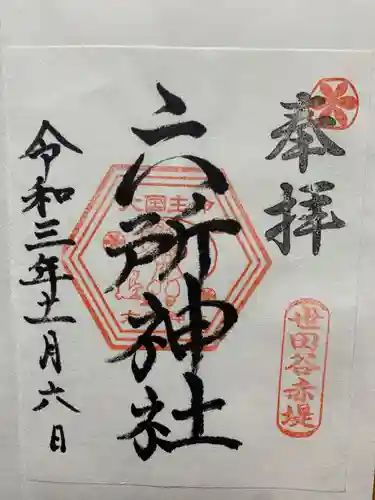 奉拝
世田谷赤堤
六所神社
大国主命
令和三年十一月六日